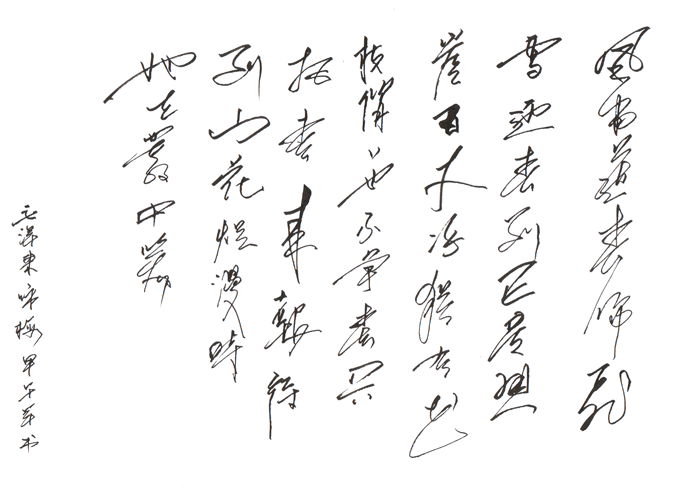 风雨送春归飛
雪迎春到已是悬
崖百丈冰犹有花
枝俏〻也不争春只
把春来報待
到山花烂漫時
她在叢中笑
毛泽東咏梅 甲午年书